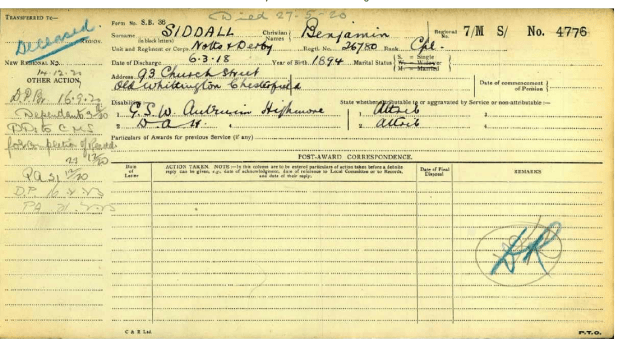 Died 27-5-20
TRANSFERRED TO—
Deceased.
REGION.
NEW REGIONAL NO.
14.12.20
OTHER ACTION,
16.9.20
Dependants
D.Ps to C M S
for completion of
P.A. 21
D.P. 16
P.A. 21
Form No. S.B. 36
Surname SIDDALL
(in block letters)
Christian Names Benjamin
Regional No. 7/M S/ No. 4776
Unit and Regiment or Corps Notts & Derby Regtl. No. 26780 Rank Cpl.
Date of Discharge 6-3-18 Year of Birth 1894 Marital Status S. = Single W. = Widower M. = Married
Address 93 Church Street
Old Whittington Chesterfield
Date of commencement of Pension
Disability State whether attributable to or aggravated by Service or non-attributable :—
1. G.S.W. Antrum Highmore 1. Attrib 3.
2. D.A.H. 2. Attrib 4.
Particulars of Awards for previous Service (if any)
POST-AWARD CORRESPONDENCE.
Date of Letter
ACTION TAKEN NOTE :—In this column are to be entered particulars of action taken before a definite reply can be given, e.g., date of acknowledgment, date of reference to Local Committee or to Records, and date of their reply.
Date of Final Disposal
REMARKS
C & E Ltd.
P.T.O.